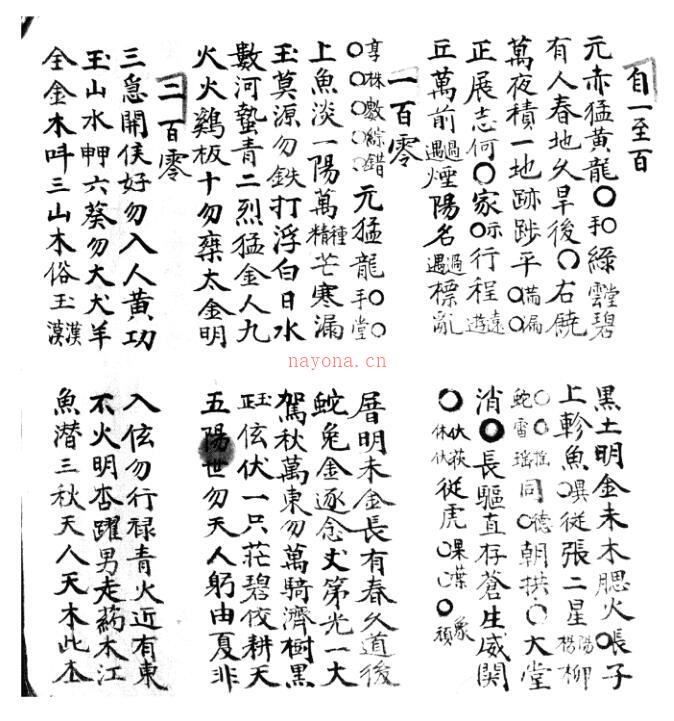 自一至百
元赤猛黄龍〇手〇綠雲堂碧
有人春地久旱後〇右饒
萬夜積一地跡踄平〇〇满漏
正展志何〇家示行程遊遠
丘萬前遇過煙陽名遇過標亂
一百零
享林數綜錯元猛龍手〇堂〇
上魚淡一陽萬精種芒寒漏
玉莫源勿鉄打浮白日水
數河蟄青二烈猛金人九
火火鷄板十勿棄太金明
二百零
三急開侯好勿入人黄功
玉山水六葵勿大犬羊
全金木三山木俗玉漠漢
黑土明金未木腮火〇張子
上軫魚〇從張二星楊陽柳
蛇雷瑤同〇德朝拱〇大堂
消〇長驅直存蒼生威関
〇休伏從虎〇課〇
厝明未金長有春久道後
蛇兔金逐念丈第光一大
駕秋萬東勿萬騎濟樹黑
伭伏一只莊碧佼耕天
五陽世勿天人躬由夏非
入伭勿行禄青火近有東
不火明杏躍男走药木江
魚潜三秋天八天木此本
nayona.cn